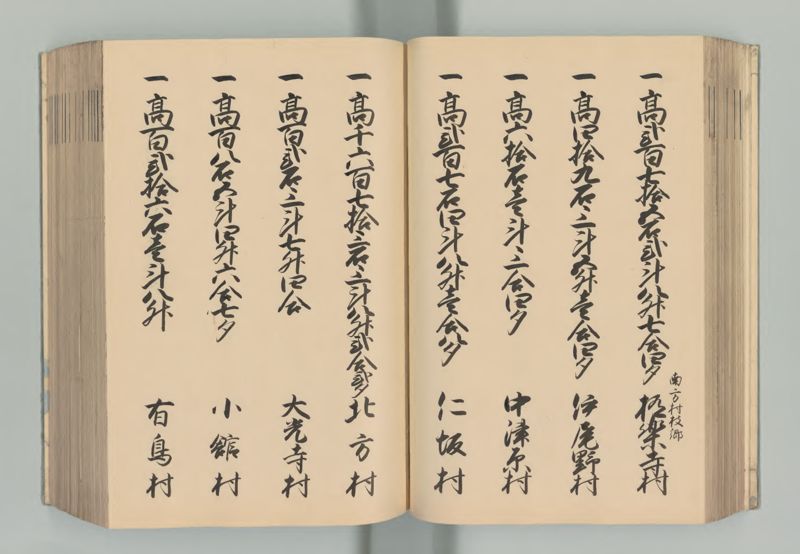 南方村枝郷
一高弐百七拾五石弐斗八升七合四夕 極楽寺村
一高四拾九石三斗五升壱合四夕 伊尾野村
一高六拾石壱斗三合四夕 中津原村
一高弐百七石四斗八升壱合八夕 仁坂村
一高千六百七拾三石三斗八升弐合弐夕 北方村
一高百弐石三斗七升四合 大光寺村
一高百八石五斗四升六合七夕 小舘村
一高百弐拾六石壱斗八升 有鳥村